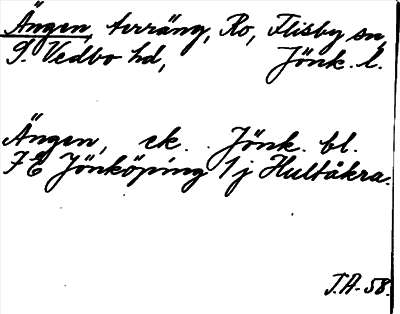 Ängen, torräng, Ro, Flisby sn,
S. Vedbo hd, Jönk. l.
Ängen, ek. Jönk. bl.
7E Jönköping 1j Hultåkra.
J.A. 58.